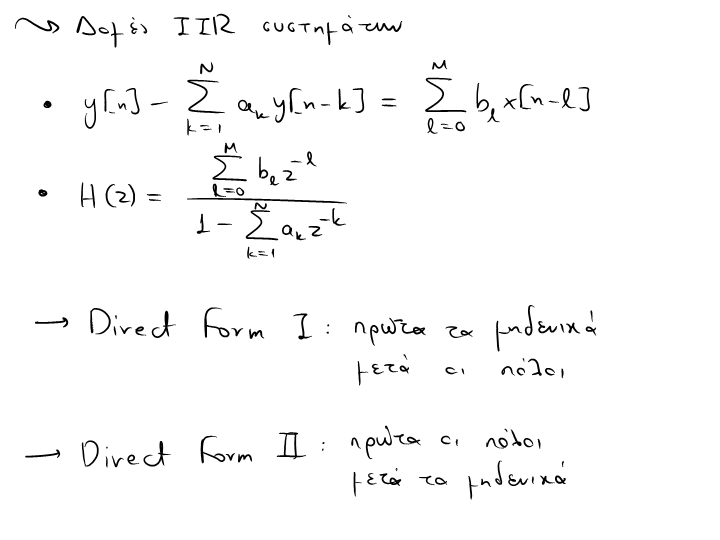 ⤳ Δομές IIR συστημάτων
• y[n] − \sum_{k=1}^{N} a_k y[n-k] = \sum_{l=0}^{M} b_l x[n-l]
• H(z) = \frac{\sum_{l=0}^{M} b_l z^{-l}}{1 - \sum_{k=1}^{N} a_k z^{-k}}
→ Direct Form I : πρώτα τα μηδενικά
μετά οι πόλοι
→ Direct Form II : πρώτα οι πόλοι
μετά τα μηδενικά